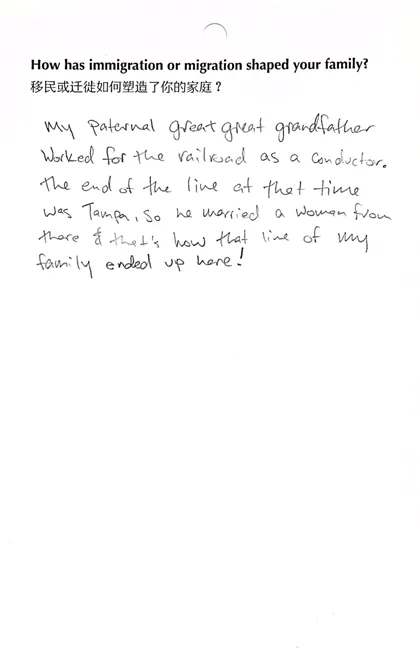 How has immigration or migration shaped your family?
移民或迁徙如何塑造了你的家庭？
My Paternal great great grandfather
Worked for the railroad as a conductor.
The end of the line at that time
was Tampa, so he married a woman from
there & that's how that line of my
family ended up here!